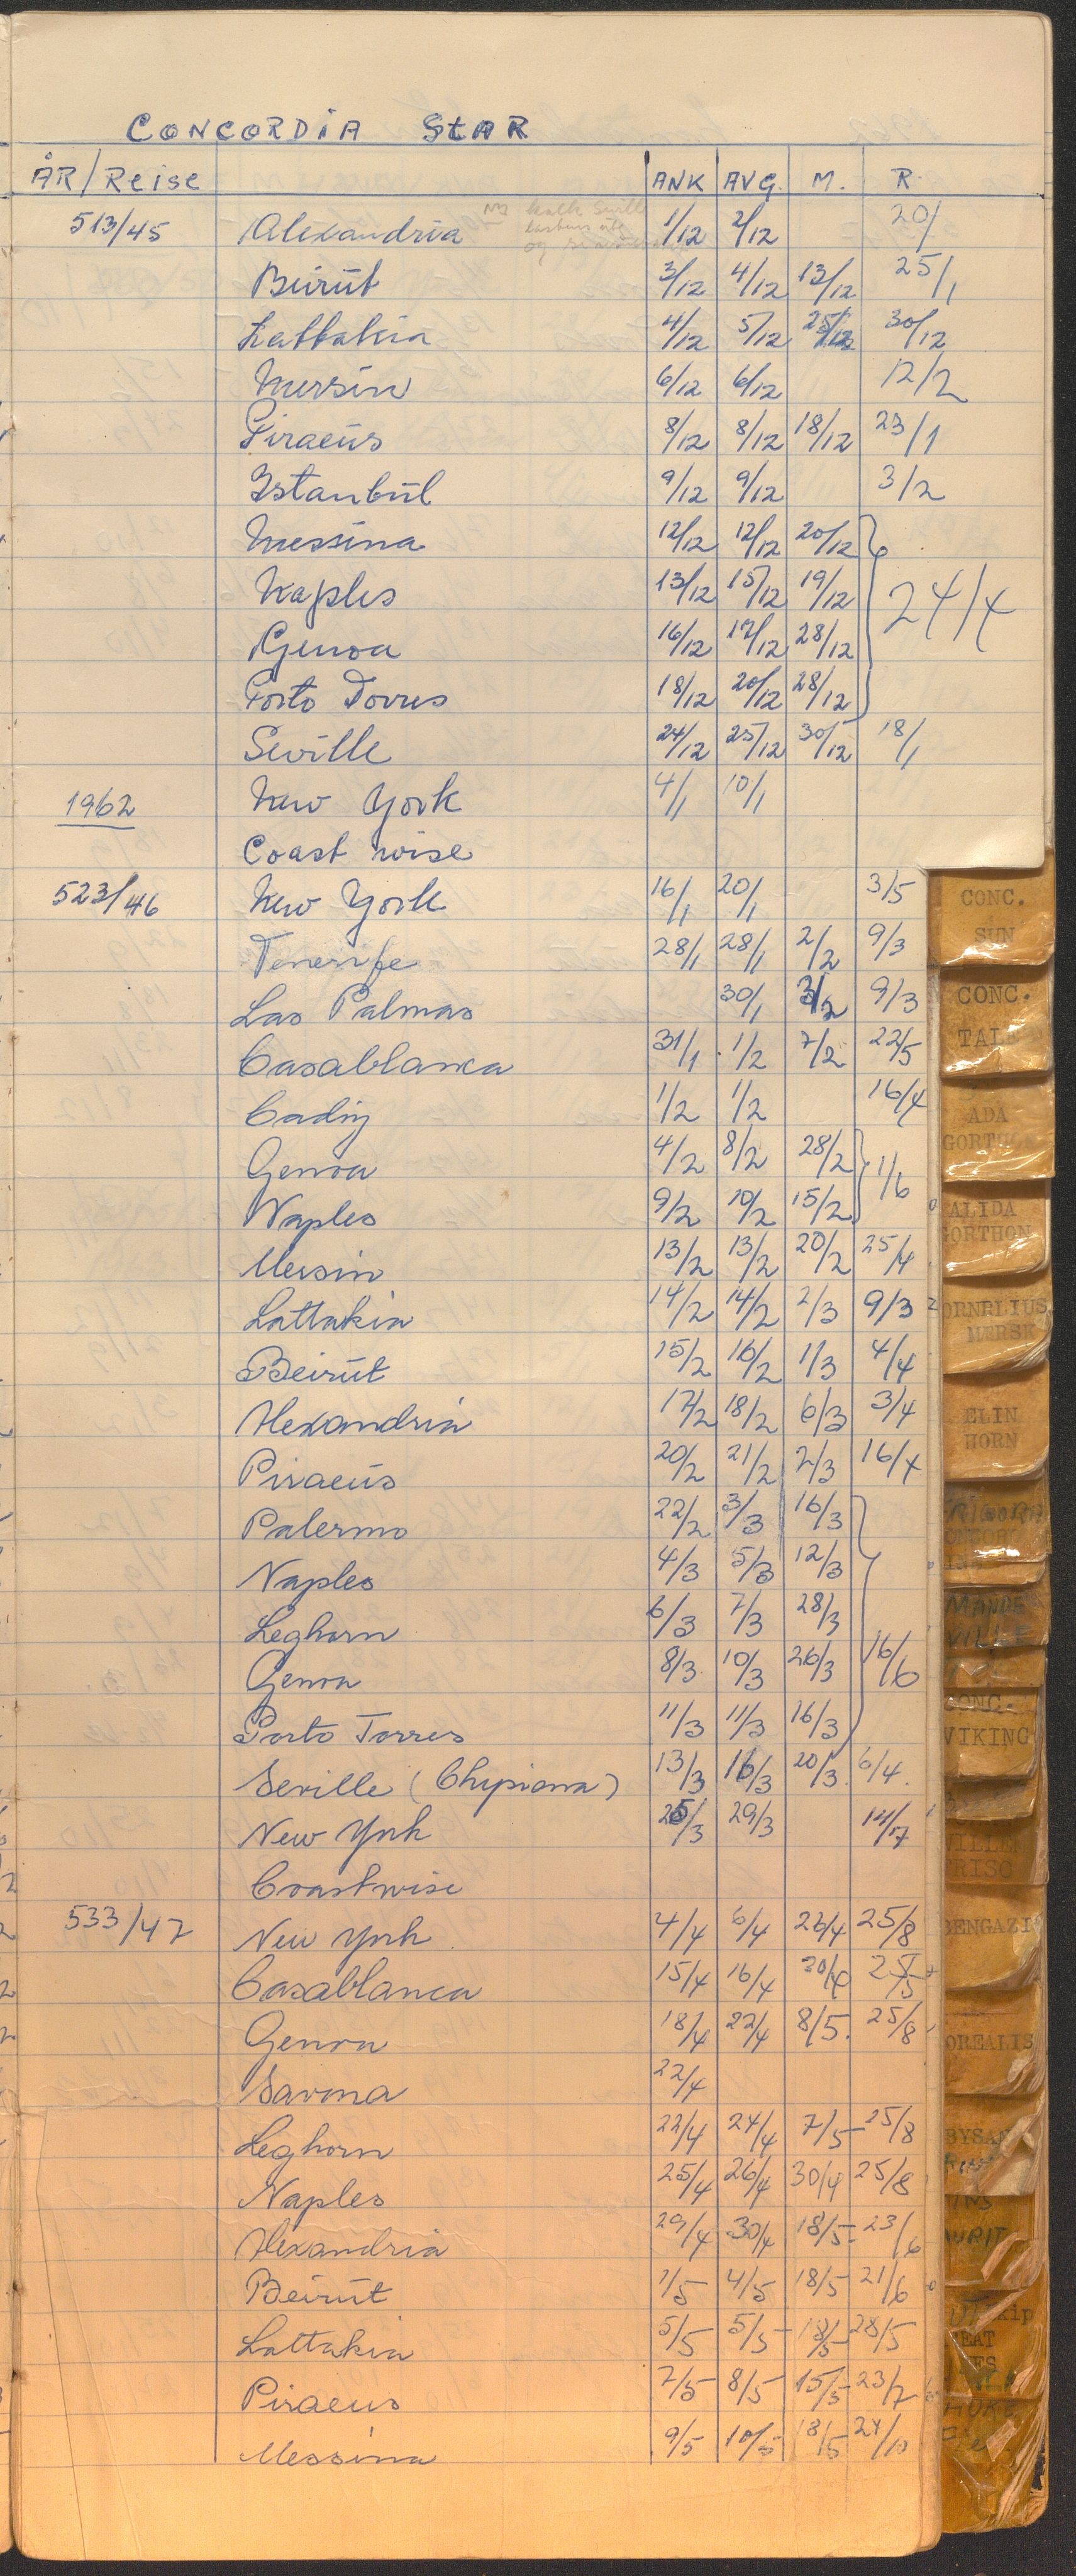 CONCORDIA STAR
ÅR/Reise ANK AVG. M. R.
513/45 Alexandria 1/12 2/12 20/
Beirut 3/12 4/12 13/12 25/1
Lattakia 4/12 5/12 30/12
Mersin 6/12 6/12 12/2
Piraeus 8/12 8/12 18/12 23/1
Istanbul 9/12 9/12 3/2
Messina 12/12 12/12 20/12
Naples 13/12 15/12 19/12 24/4
Genoa 16/12 17/12 28/12
Porto Torres 18/12 20/12 28/12
Seville 24/12 25/12 30/12 18/1
1962 New York 4/1 10/1
Coast wise
523/46 New York 16/1 20/1 3/5
Tenerife 28/1 28/1 2/2 9/3
Las Palmas 30/1 3/2 9/3
Casablanca 31/1 1/2 7/2 22/5
Cadiz 1/2 1/2 16/4
Genoa 4/2 8/2 28/2 1/6
Naples 9/2 10/2 15/2
Mersin 13/2 13/2 20/2 25/4
Lattakia 14/2 14/2 2/3 9/3
Beirut 15/2 16/2 1/3 4/4
Alexandria 17/2 18/2 6/3 3/4
Piraeus 20/2 21/2 2/3 16/4
Palermo 22/2 3/3 16/3
Naples 4/3 5/3 12/3
Leghorn 6/3 7/3 28/3
Genoa 8/3 10/3 26/3 16/6
Porto Torres 11/3 11/3 16/3
Seville (Chipiona) 13/3 16/3 20/3 6/4
New York 25/3 29/3 14/7
Coastwise
533/47 New York 4/4 6/4 26/4 25/8
Casablanca 15/4 16/4 30/4 25/5
Genoa 18/4 22/4 8/5 25/8
Savona 22/4
Leghorn 22/4 24/4 7/5 25/8
Naples 25/4 26/4 30/4 25/8
Alexandria 29/4 30/4 18/5 23/6
Beirut 1/5 4/5 18/5 21/6
Lattakia 5/5 5/5 18/5 28/5
Piraeus 7/5 8/5 15/5 23/7
Messina 9/5 10/5 18/5 24/10
CONC.
SUN
CONC.
ADA
GORTHON
ALIDA
GORTHON
CORNELIUS
MÆRSK
ELIN
HORN
MANDE
VILLE
CONC.
VIKING
BENGAZI